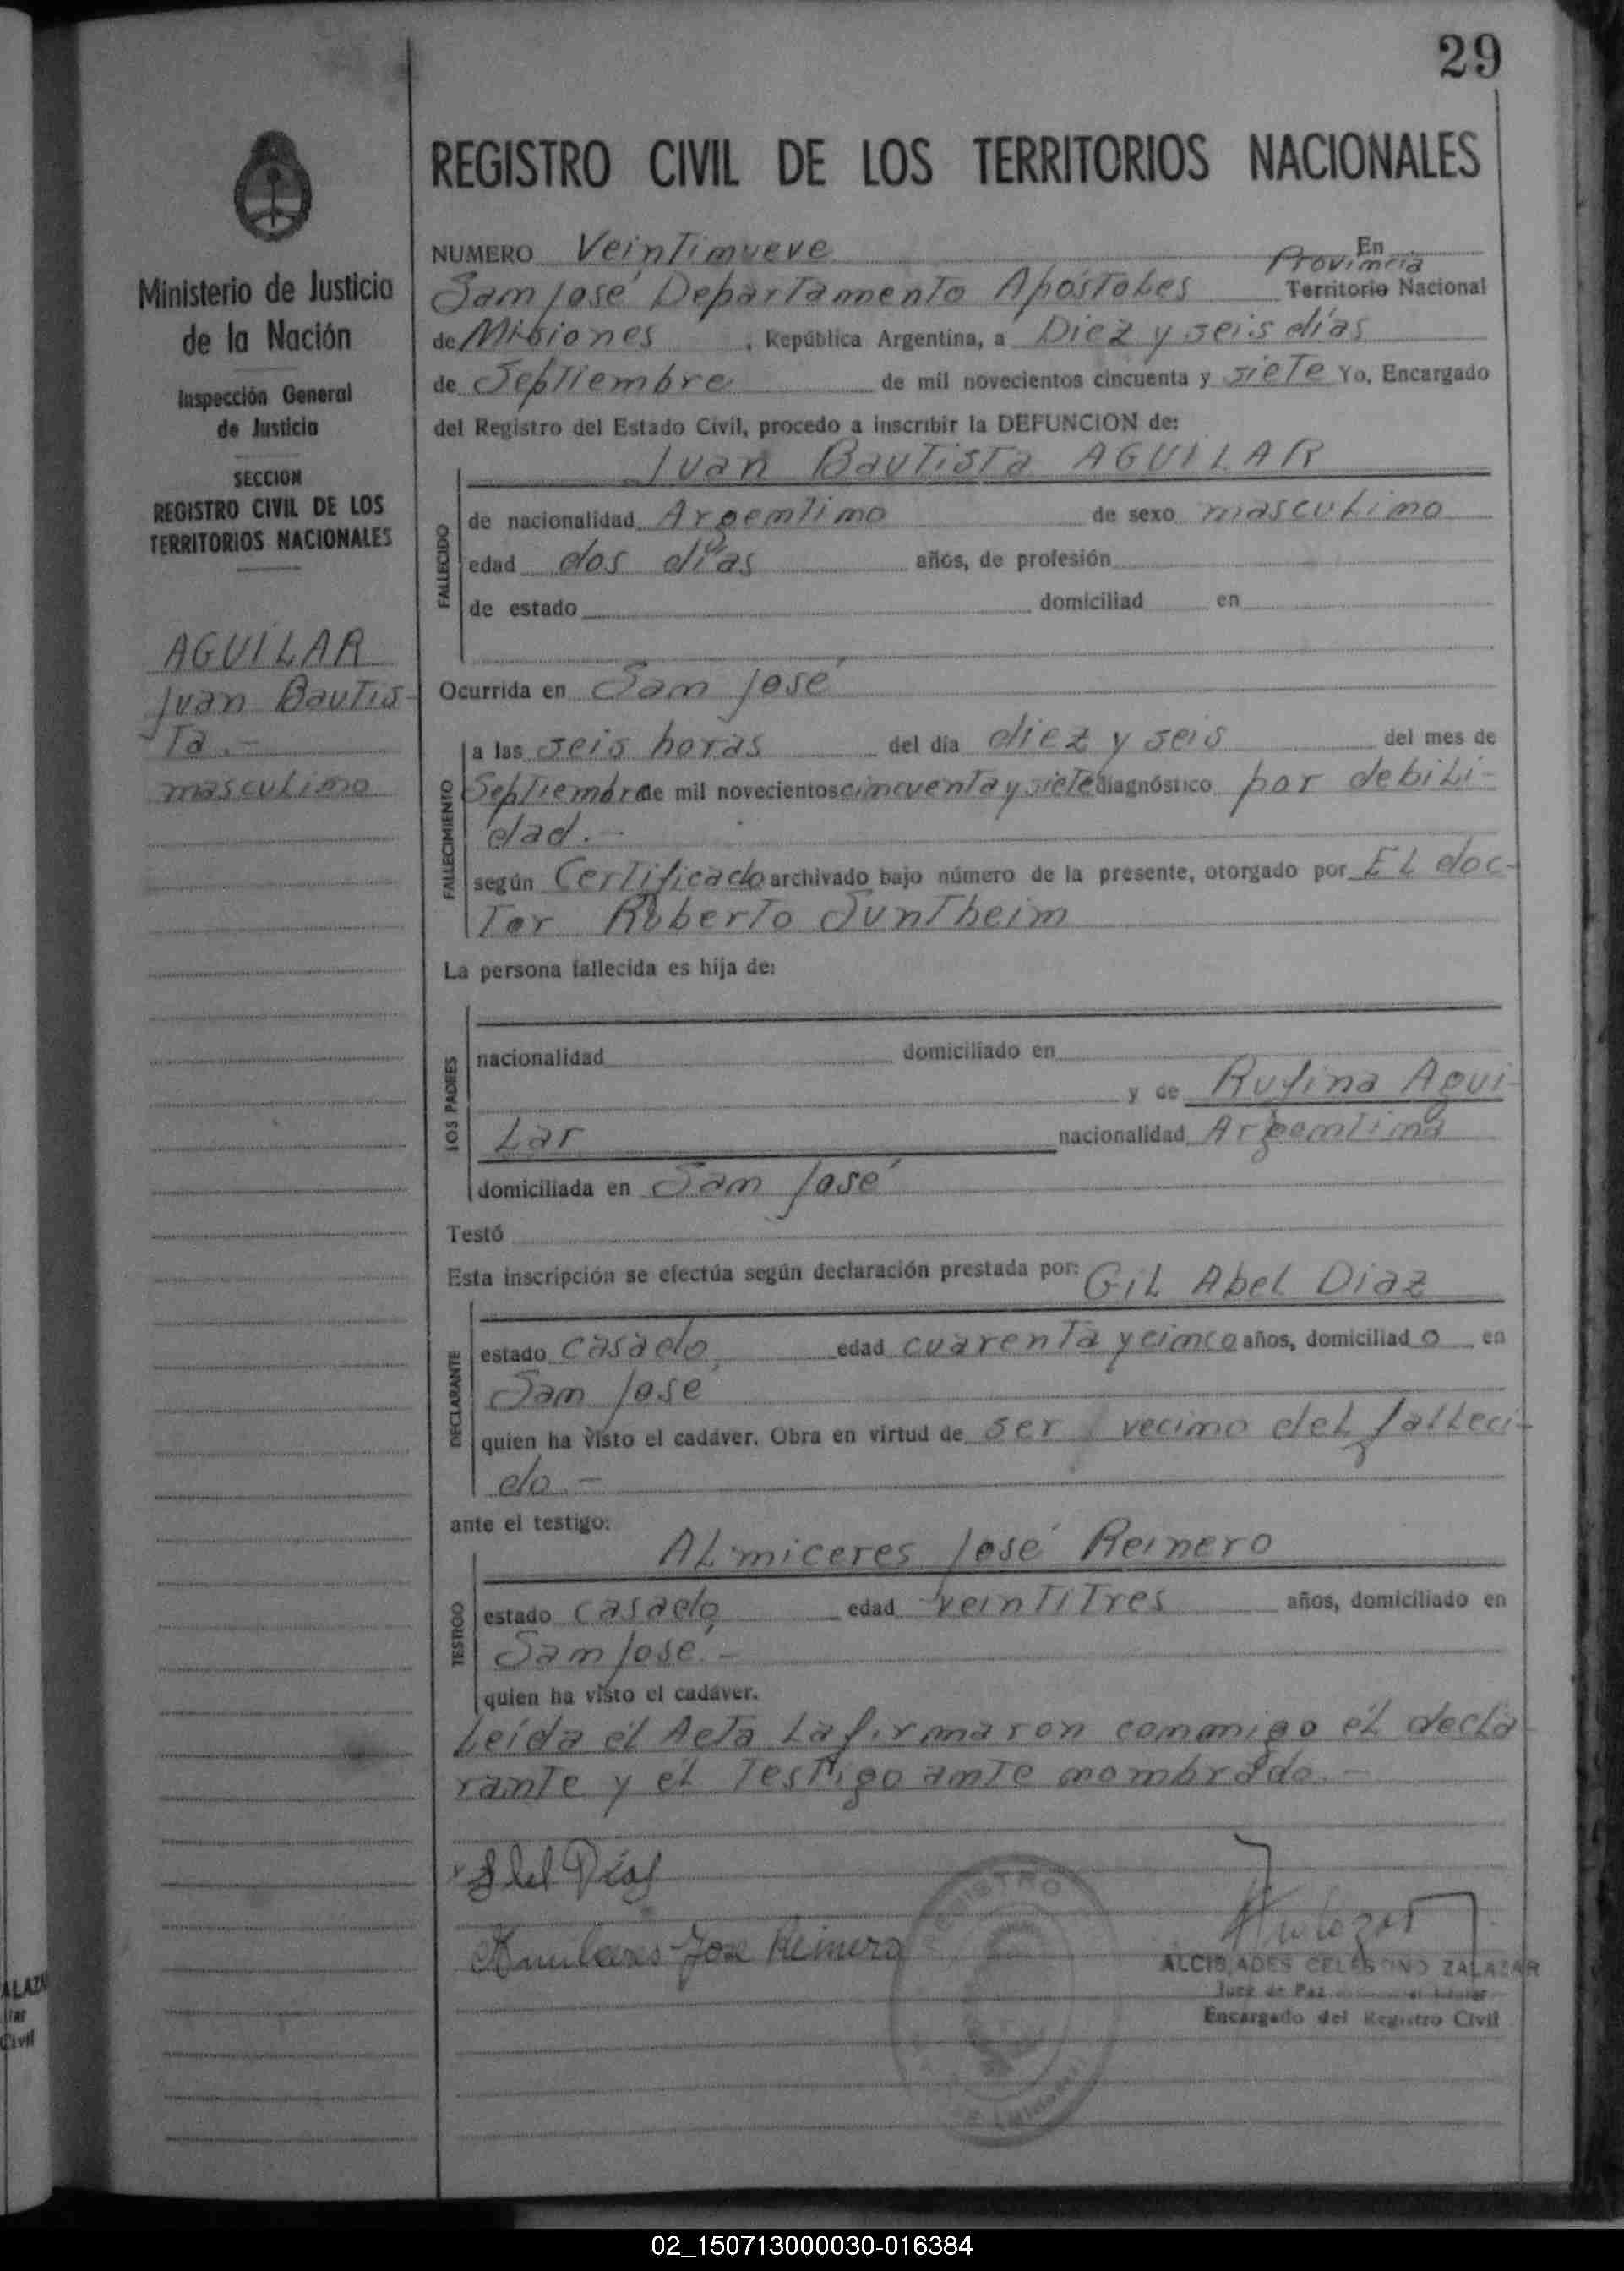 29
REGISTRO CIVIL DE LOS TERRITORIOS NACIONALES
Ministerio de Justicia
de la Nación
Inspección General
de Justicia
SECCION
REGISTRO CIVIL DE LOS
TERRITORIOS NACIONALES
AGUILAR
Juan Bautis-
ta.-
masculino
NUMERO Veintinueve En
Provincia
San José Departamento Apóstoles Territorio Nacional
de Misiones, República Argentina, a Diez y seis días
de Septiembre de mil novecientos cincuenta y siete Yo, Encargado
del Registro del Estado Civil, procedo a inscribir la DEFUNCION de:
Juan Bautista AGUILAR
FALLECIDO
de nacionalidad Argentino de sexo masculino
edad dos días años, de profesión
de estado domiciliad en
Ocurrida en San José
FALLECIMIENTO
a las seis horas del día diez y seis del mes de
Septiembre de mil novecientos cincuenta y siete diagnóstico por debili-
dad.-
según Certificado archivado bajo número de la presente, otorgado por El doc-
tor Roberto Suntheim
La persona fallecida es hija de:
LOS PADRES
nacionalidad domiciliado en
y de Rufina Agui-
lar nacionalidad Argentina
domiciliada en San José
Testó
Esta inscripción se efectúa según declaración prestada por: Gil Abel Diaz
DECLARANTE
estado casado, edad cuarenta y cinco años, domiciliado en
San José
quien ha visto el cadáver. Obra en virtud de ser vecino del falleci-
do.-
ante el testigo:
Almiceres José Reinero
TESTIGO
estado casado, edad veintitres años, domiciliado en
San José.-
quien ha visto el cadáver.
Leída él Acta la firmaron conmigo él decla-
rante y él Testigo ante nombrado.-
Abel Díaz
Jose Reinero
REGISTRO
ALCIBIADES CELESTINO ZALAZAR
Juez de Paz
Encargado del Registro Civil
ALAZA
Civil
02_150713000030-016384